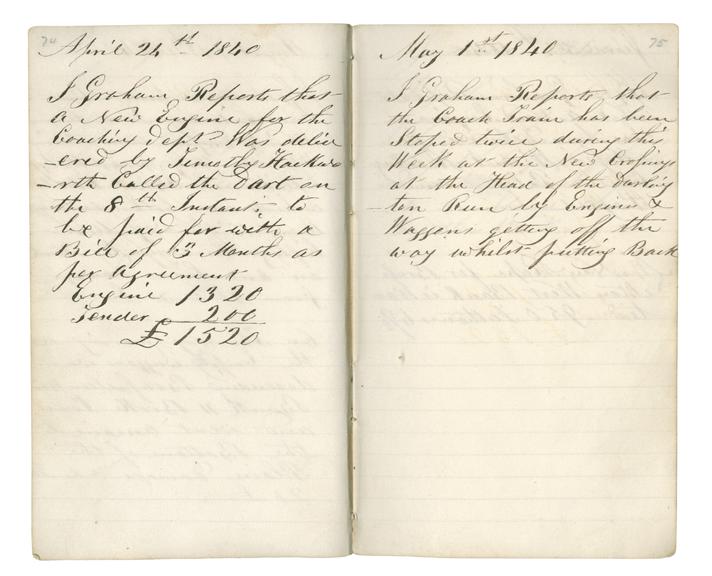 74
April 24th 1840
J Graham Reports that
a New Engine for the
Coaching dept Was deliv
-ered by Timothy Hackwo
-rth Called the Dart on
the 8th Instant, to
be paid for with a
Bill of 3 Months as
per agreement
Engine 1320
Tender 200
£ 1520
75
May 1st 1840
J Graham Reports that
the Coach Train has been
Stoped twice during this
Week at the New Crosings
at the Head of the Darling
-ton Run by Engines &
Waggons getting off the
way whilst putting Back